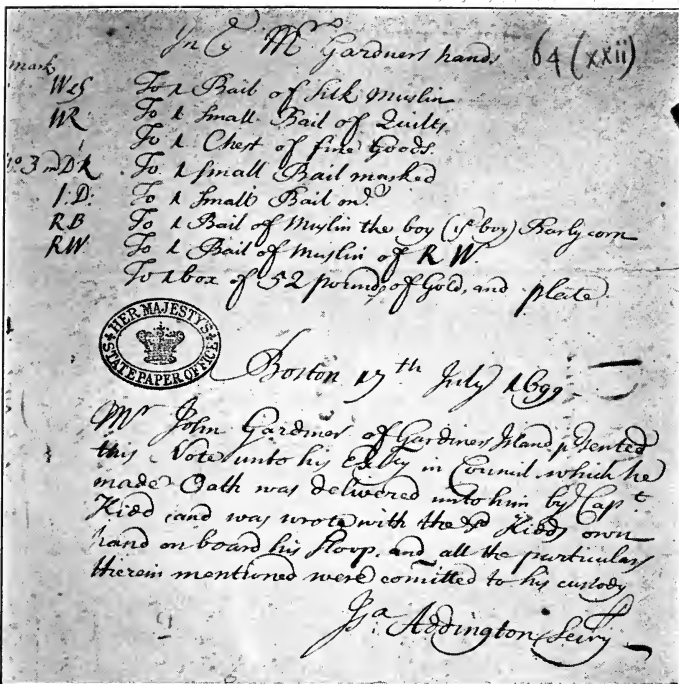 In yᵉ Mʳˢ Gardners hands 64 (xxii)
mark
W&S To 1 Bail of Silk Muslin
WR To 1 Small Bail of Quilts
To 1 Chest of fine Goods.
no. 3 mDR To 1 Small Bail marked
I.D. To 1 Small Bail
RB To 1 Bail of Muslin the boy (yᵉ boy) Barlycorn
RW To 1 Bail of Muslin of R W.
To 1 box of 52 pounds of Gold, and plate
HER MAJESTY'S
STATE PAPER OFFICE
Boston 17th July 1699
Mr John Gardiner of Gardiners Island presented
this Note unto his Excy in Council which he
made Oath was delivered unto him by Capᵗ
Kidd and was wrote with the sd Kidds own
hand on board his Sloop, and all the particulars
therein mentioned were comitted to his custody
Jsᵃ Addington Secry